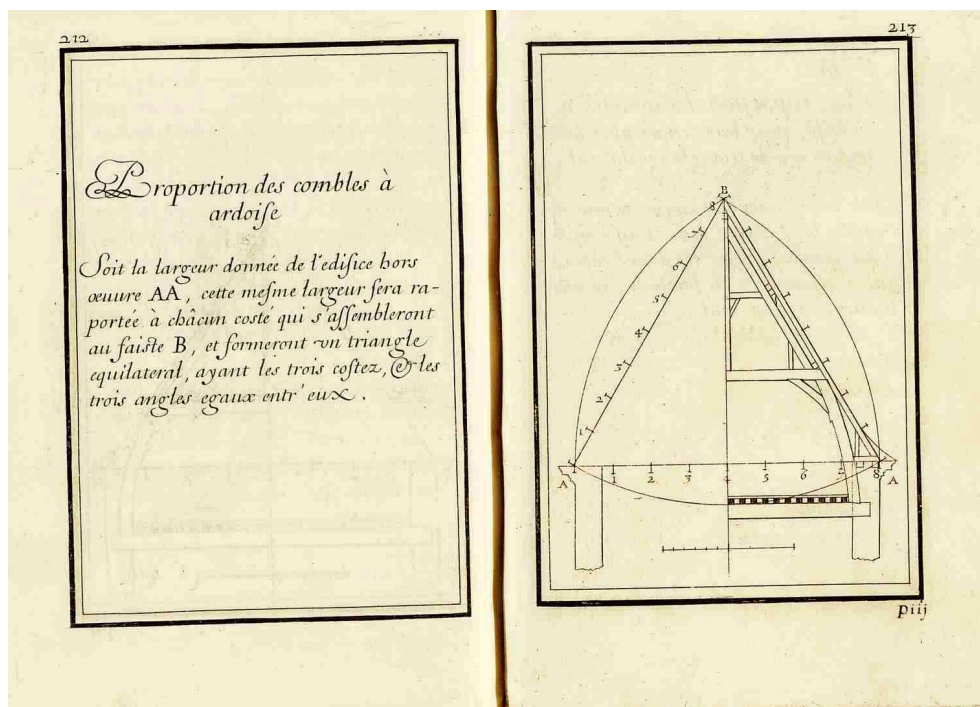 212
Proportion des combles à
ardoise
Soit la largeur donnée de l'edifice hors
œuure AA, cette mesme largeur sera ra-
portée à châcun costé qui s'assembleront
au faiste B, et formeront vn triangle
equilateral, ayant les trois costez, & les
trois angles egaux entr'eux.
213
B
8
7
6
5
4
3
2
1
A
1
2
3
4
5
6
7
8
A
piij